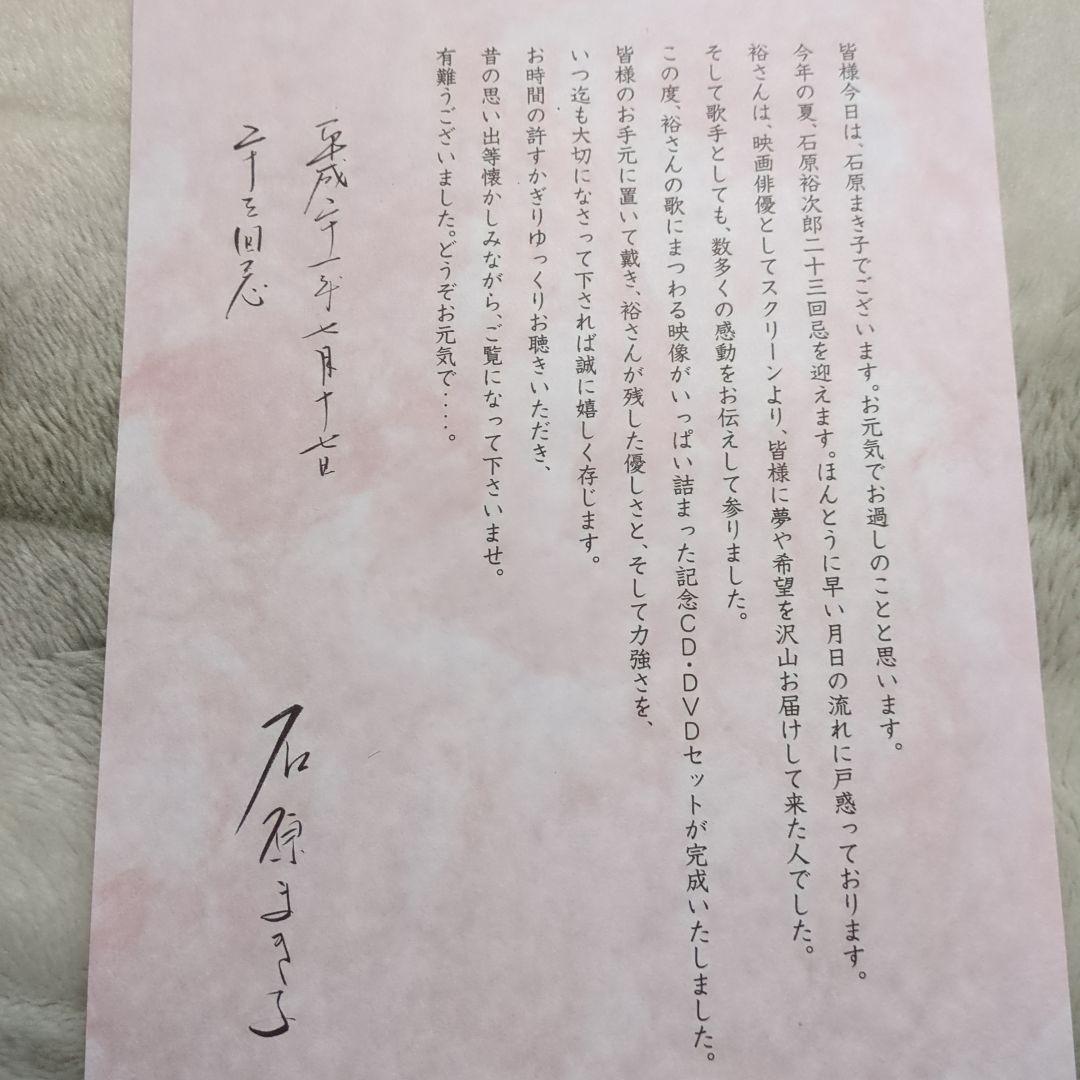 皆様今日は、石原まき子でございます。お元気でお過しのことと思います。
今年の夏、石原裕次郎二十三回忌を迎えます。ほんとうに早い月日の流れに戸惑っております。
裕さんは、映画俳優としてスクリーンより、皆様に夢や希望を沢山お届けして来た人でした。
そして歌手としても、数多くの感動をお伝えして参りました。
この度、裕さんの歌にまつわる映像がいっぱい詰まった記念CD・DVDセットが完成いたしました。
皆様のお手元に置いて戴き、裕さんが残した優しさと、そして力強さを、
いつ迄も大切になさって下されば誠に嬉しく存じます。
お時間の許すかぎりゆっくりお聴きいただき、
昔の思い出等懐かしみながら、ご覧になって下さいませ。
有難うございました。どうぞお元気で‥‥。
平成二十一年七月十七日
二十三回忌
石原まき子